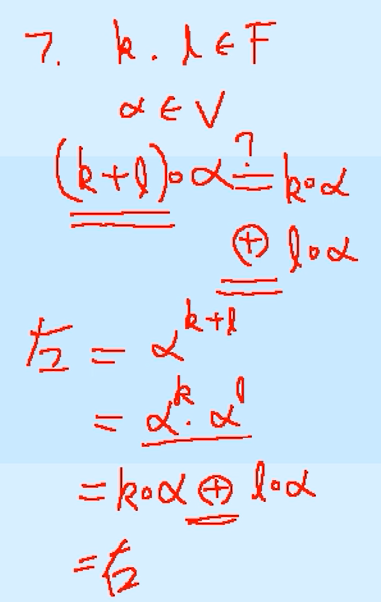 7. k . l ∈ F
α ∈ V
(k+l)∘α ≟ k∘α
⊕ l∘α
= α^{k+l}
= α^k · α^l
= k∘α ⊕ l∘α
=